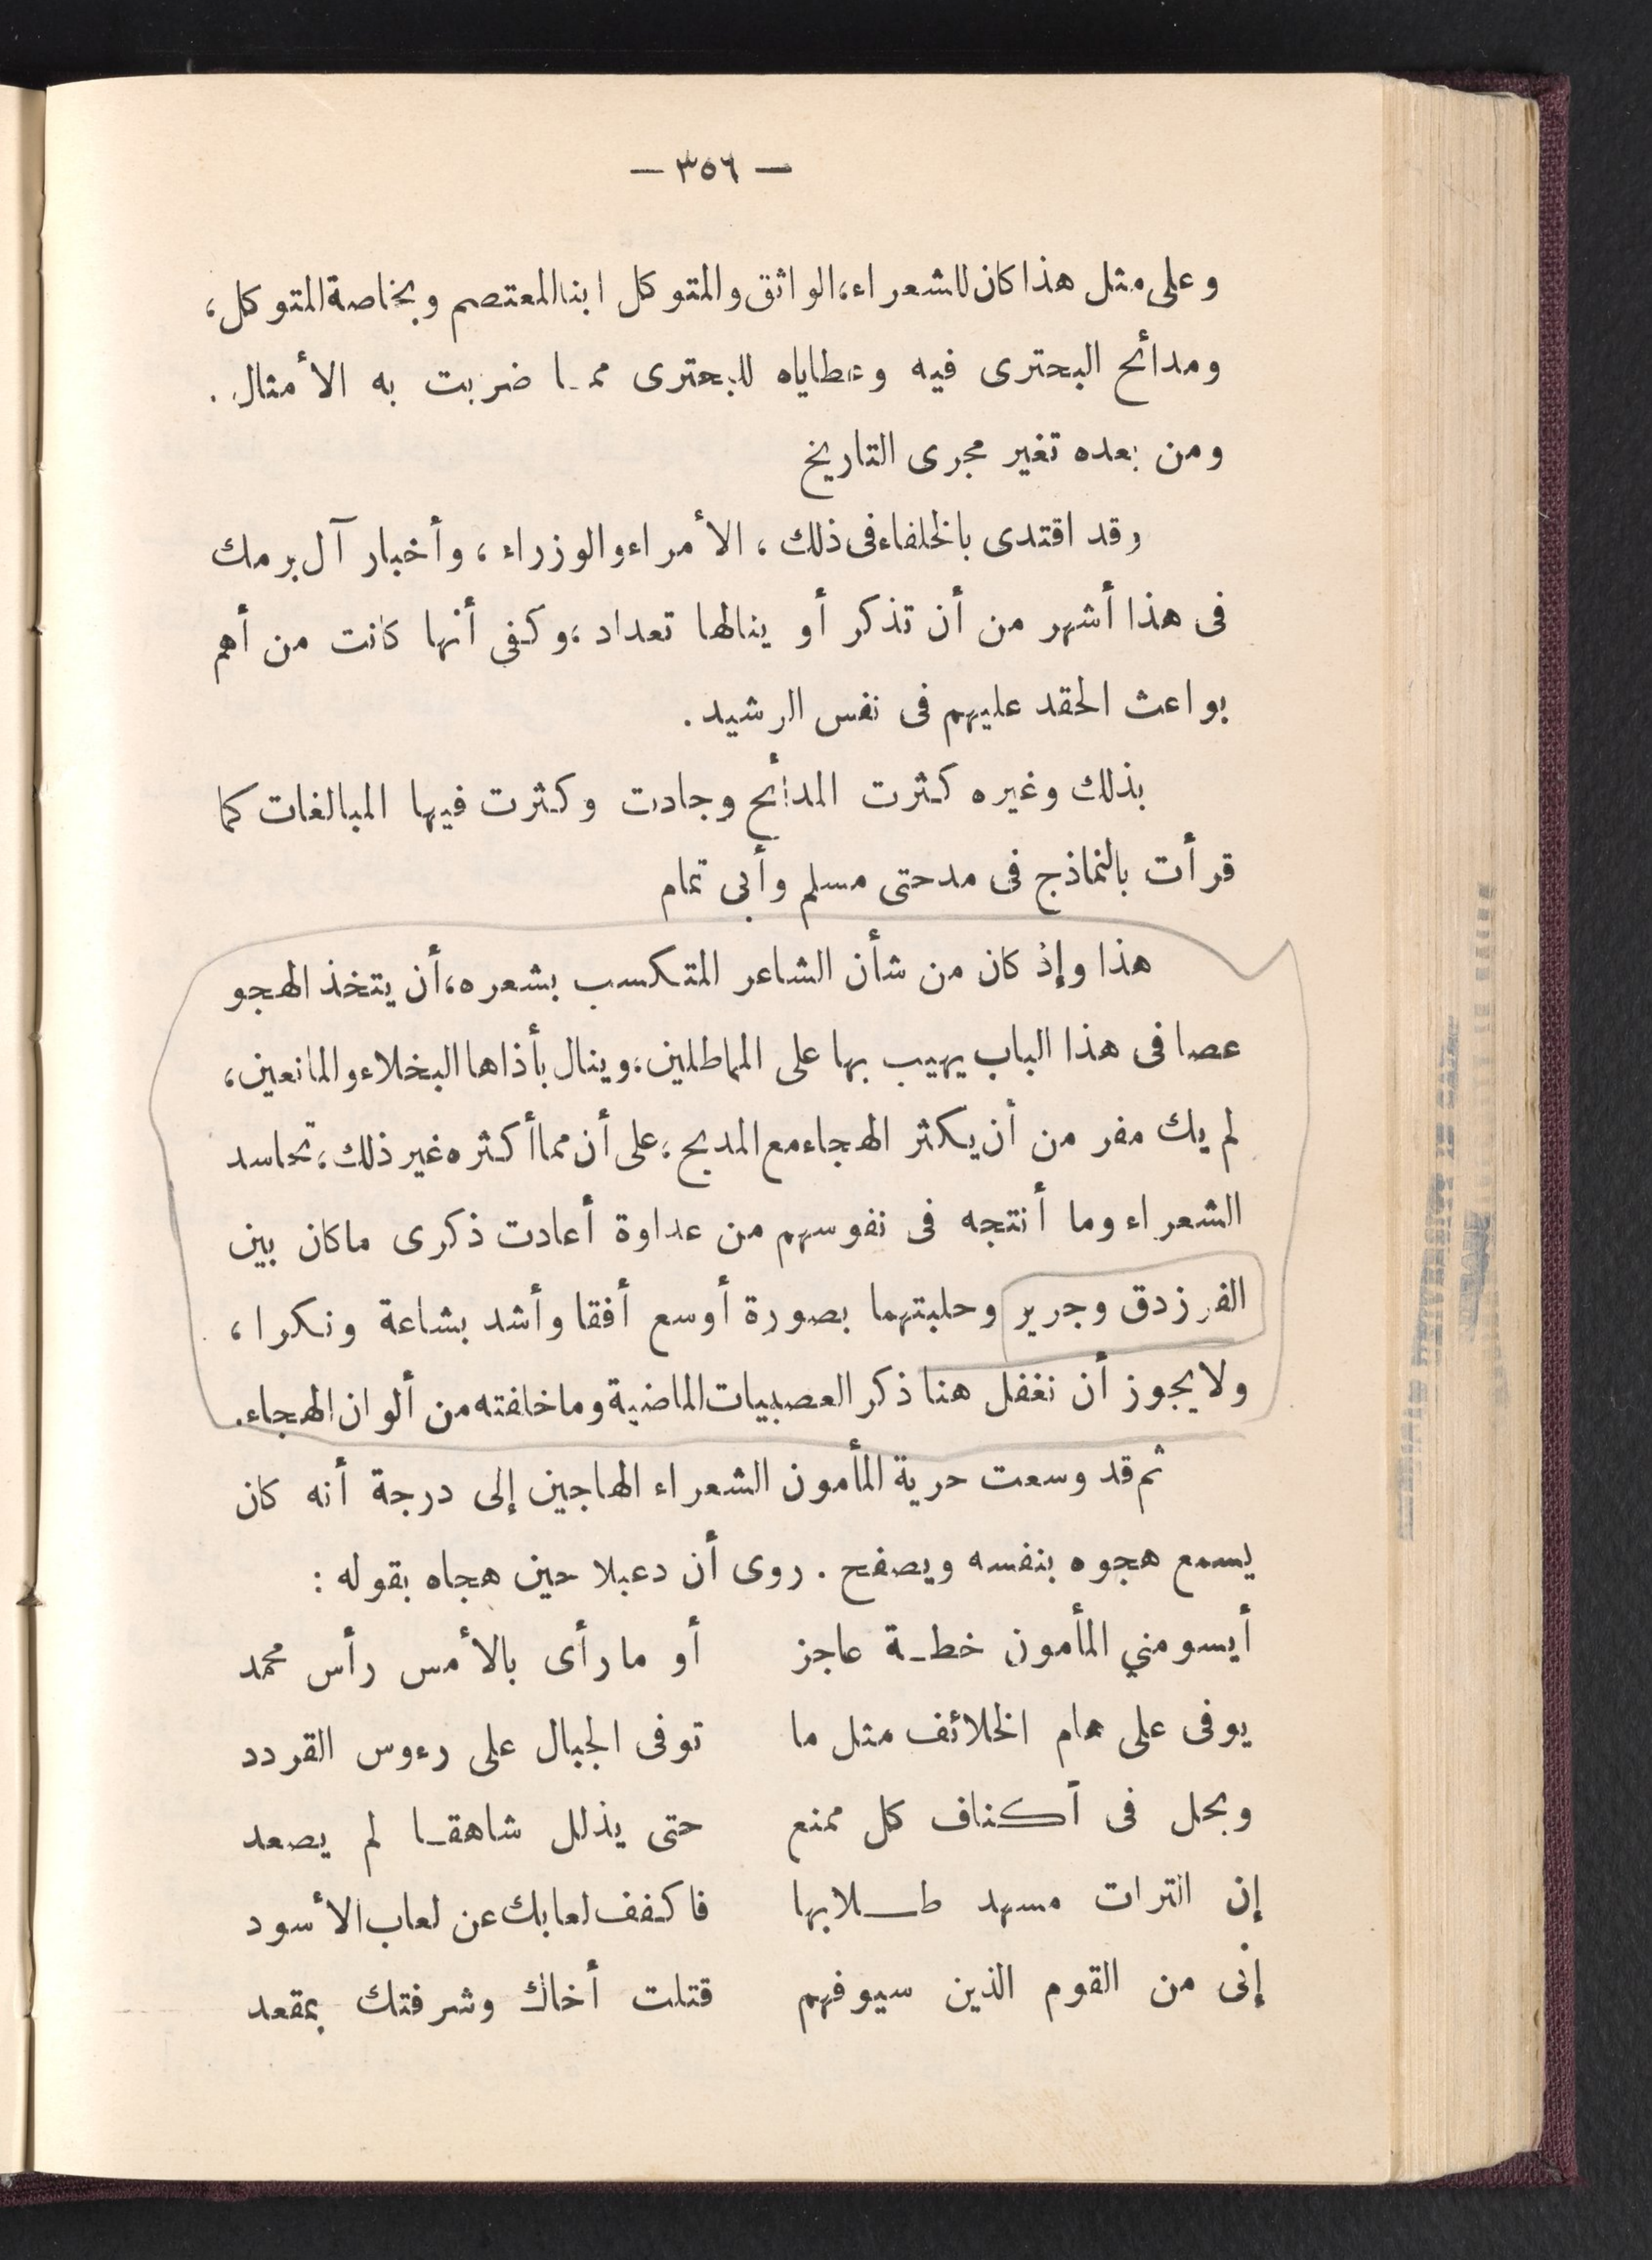 — ٣٥٦ —
وعلى مثل هذا كان للشعراء، الواثق والمتوكل ابنا المعتصم وبخاصة المتوكل،
ومدائح البحترى فيه وعطاياه للبحترى ممـا ضربت به الأمثال.
ومن بعده تغير مجرى التاريخ
وقد اقتدى بالخلفاء فى ذلك، الأمراء والوزراء، وأخبار آل برمك
فى هذا أشهر من أن تذكر أو ينالها تعداد، وكفى أنها كانت من أهم
بواعث الحقد عليهم فى نفس الرشيد.
بذلك وغيره كثرت المدائح وجادت وكثرت فيها المبالغات كما
قرأت بالنماذج فى مدحتى مسلم وأبى تمام
هذا وإذ كان من شأن الشاعر المتكسب بشعره، أن يتخذ الهجو
عصا فى هذا الباب يهيب بها على المماطلين، وينال بأذاها البخلاء والمانعين،
لم يك مفر من أن يكثر الهجاء مع المديح، على أن مما أكثره غير ذلك، تحاسد
الشعراء وما أنتجه فى نفوسهم من عداوة أعادت ذكرى ماكان بين
الفرزدق وجرير وحلبتهما بصورة أوسع أفقا وأشد بشاعة ونكرا،
ولا يجوز أن نغفل هنا ذكر العصبيات الماضية وما خلفته من ألوان الهجاء.
ثم قد وسعت حرية المأمون الشعراء الهاجين إلى درجة أنه كان
يسمع هجوه بنفسه ويصفح. روى أن دعبلا حين هجاه بقوله:
أيسومني المأمون خطـة عاجز أو ما رأى بالأمس رأس محمد
يوفى على هام الخلائف مثل ما توفى الجبال على رءوس القردد
ويحل فى أكناف كل ممنع حتى يذلل شاهقـا لم يصعد
إن الترات مسهد طـلابها فاكفف لعابك عن لعاب الأسود
إنى من القوم الذين سيوفهم قتلت أخاك وشرفتك بمقعد